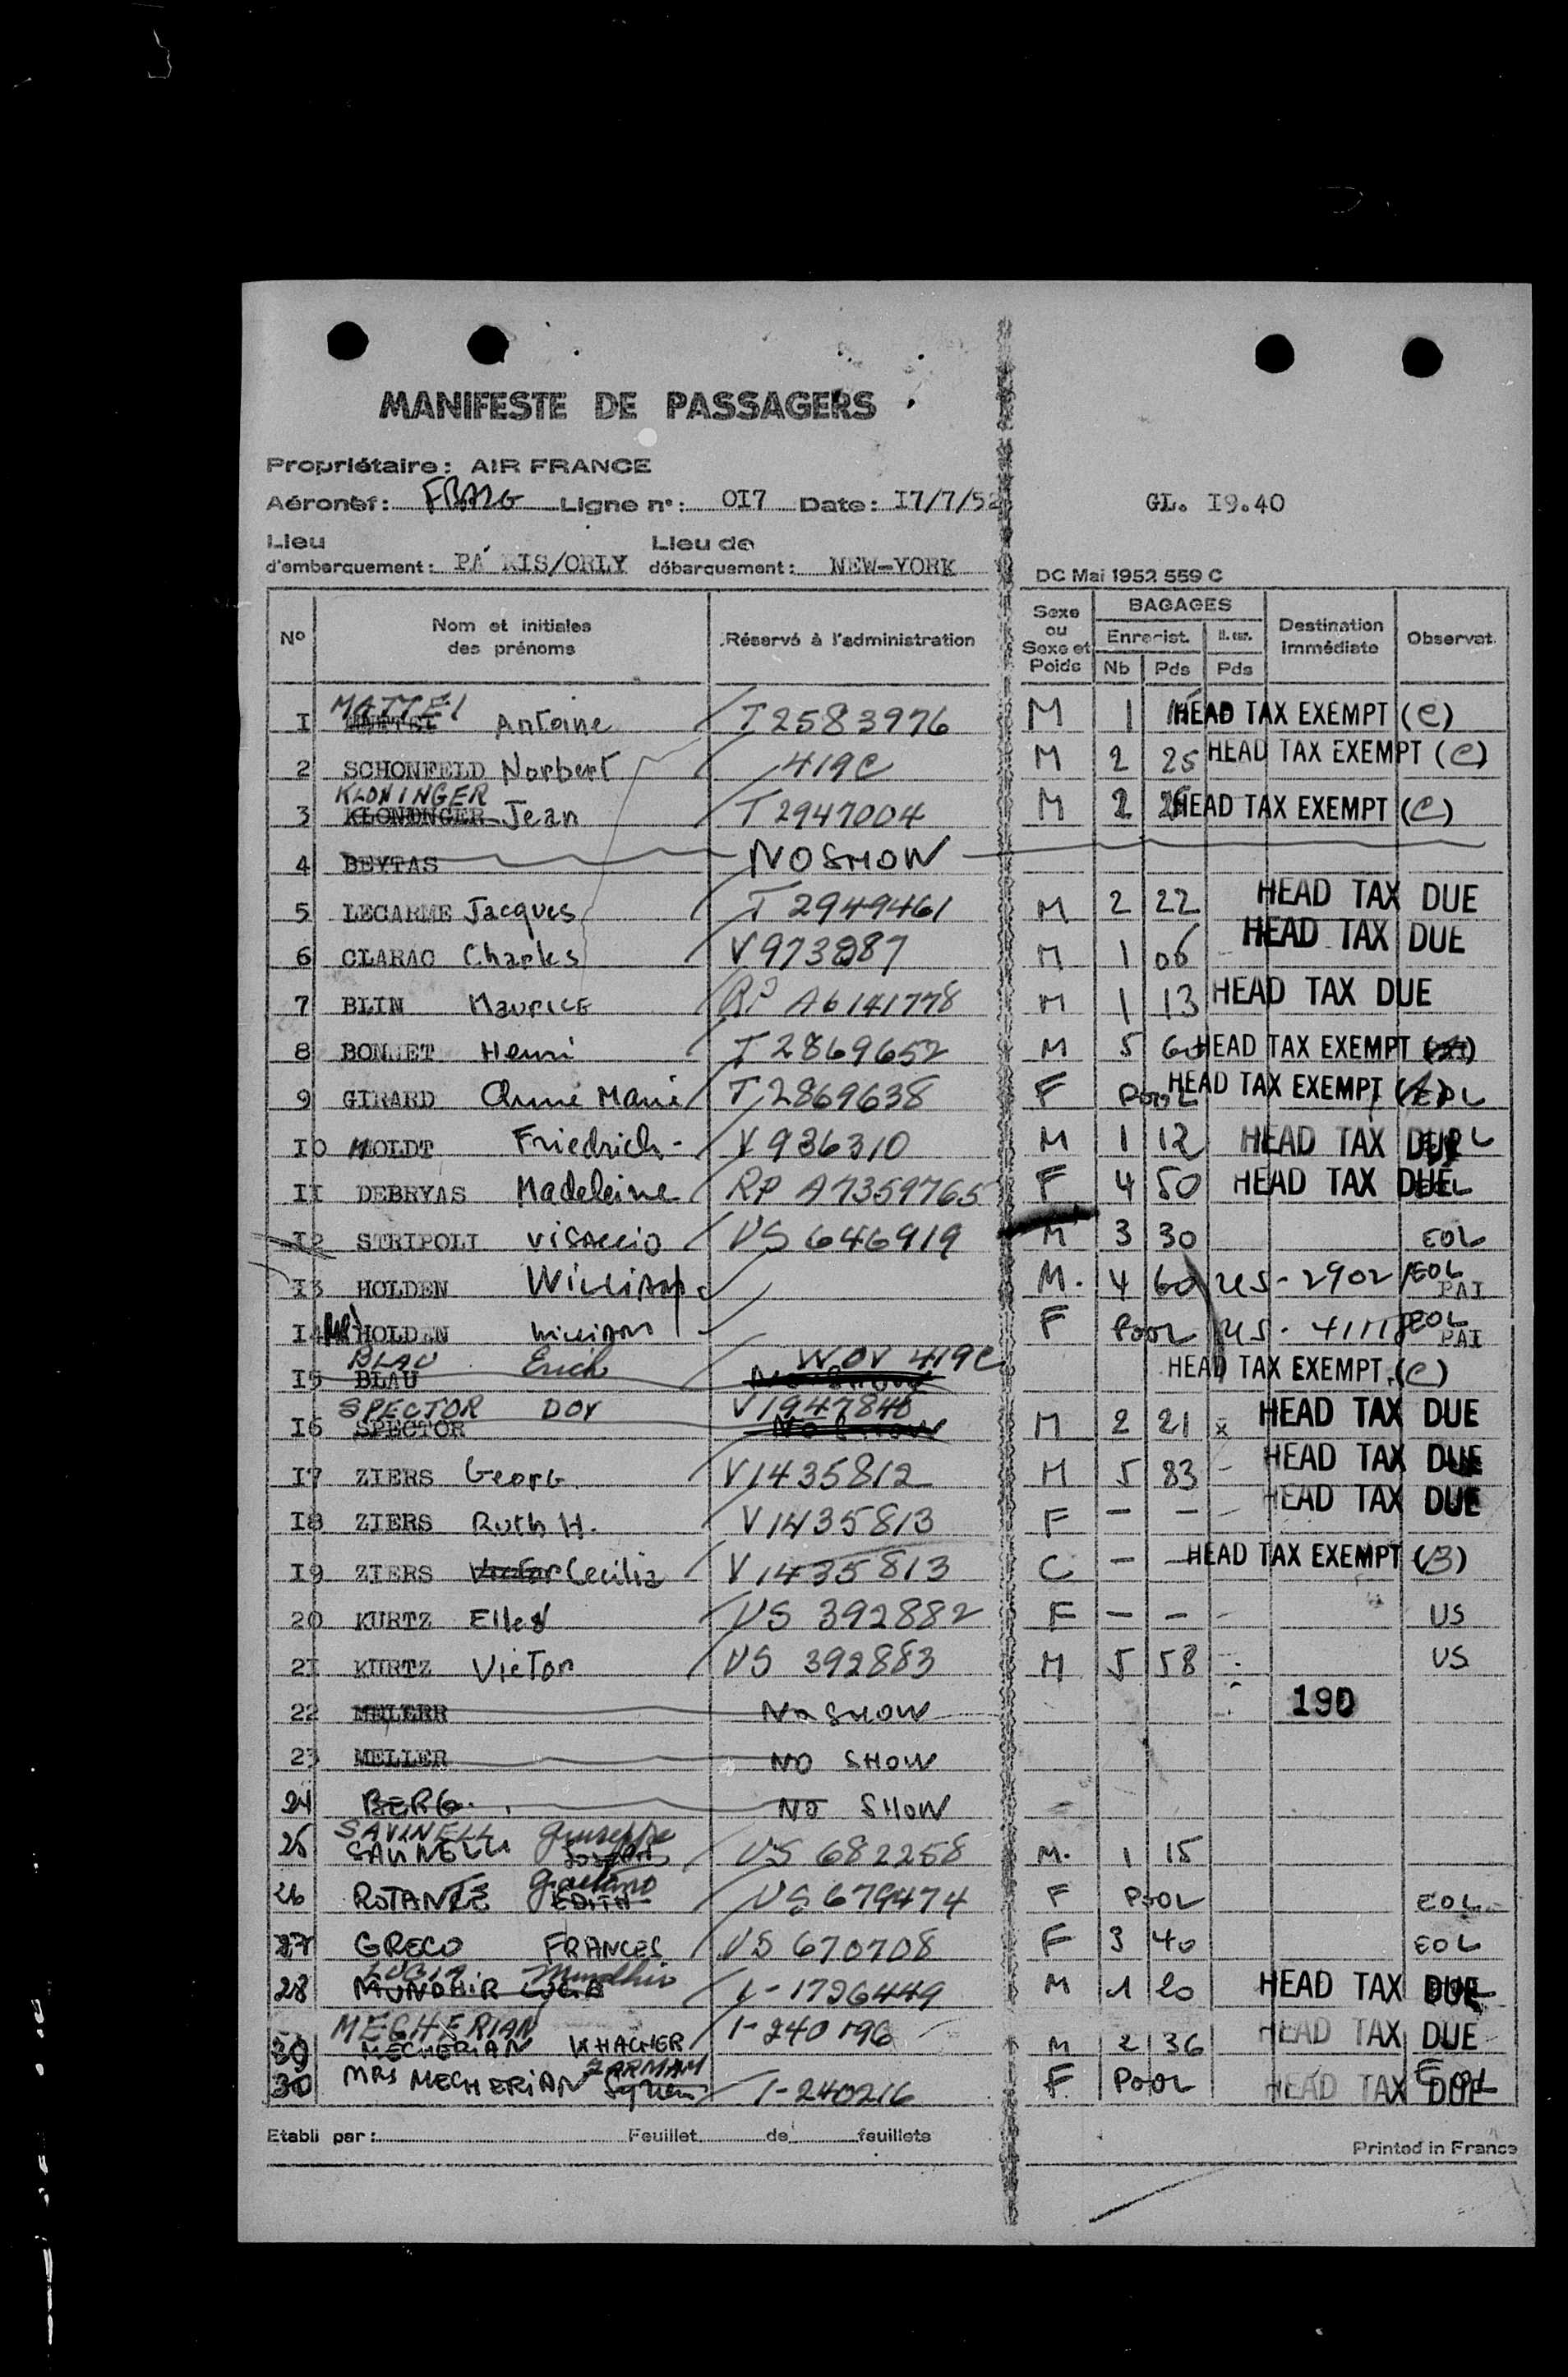 MANIFESTE DE PASSAGERS
Propriétaire: AIR FRANCE
Aéronef: Ligne n°: OI7 Date: I7/7/52 GL. I9.40
Lieu d'embarquement: PARIS/ORLY Lieu de débarquement: NEW-YORK
DC Mai 1952 559 C
N° Nom et initiales des prénoms Réservé à l'administration Sexe ou Sexe et Poids BAGAGES Enregist. Nb Pds Pds Destination immédiate Observat.
MATTEI
I Antoine T2583976 M 1 HEAD TAX EXEMPT (C)
2 SCHONFELD Norbert 419C M 2 25 HEAD TAX EXEMPT (C)
KLONINGER
3 KLONONGER Jean T2947004 M 2 HEAD TAX EXEMPT (C)
4 BEYTAS NO SHOW
5 LECARME Jacques T 2949461 M 2 22 HEAD TAX DUE
6 CLARAC Charles V973287 M 1 06 HEAD TAX DUE
7 BLIN Maurice RP A6141778 M 1 13 HEAD TAX DUE
8 BONNET Henri T2869652 M 5 60 HEAD TAX EXEMPT
9 GIRARD Anne Marie T2869638 F POOL HEAD TAX EXEMPT (A)
IO MOLDT Friedrich - V936310 M 1 12 HEAD TAX DUE
II DEBRYAS Madeleine RP A7359765 F 4 50 HEAD TAX DUE
I2 STRIPOLI Visaccio US 646919 M 3 30 EOL
I3 HOLDEN William M. 4 60 US - 2902 EOL PAI
I4 HOLDEN William F POOL US - EOL PAI
BLAU Erich WOV 419C
I5 BLAU No Show HEAD TAX EXEMPT (C)
SPECTOR DOV V1947840
I6 SPECTOR No Show M 2 21 x HEAD TAX DUE
I7 ZIERS Georg. V1435812 M 5 83 - HEAD TAX DUE
I8 ZIERS Ruth H. V1435813 F - - - HEAD TAX DUE
I9 ZIERS Cecilia V1435813 C - - HEAD TAX EXEMPT (B)
20 KURTZ Ellen US 392882 F - - - US
2I KURTZ Victor US 392883 M 5 58 - US
22 MELLER No SHOW 190
23 MELLER NO SHOW
24 BERG. NO SHOW
SAVINELLI Giuseppe
25 SAVINELLI Joseph US 682258 M. 1 15
Gaetano
26 ROTANTE EDITH US 679474 F POOL EOL
27 GRECO FRANCES US 670708 F 3 40 EOL
LUCIA
28 MUNDHIR LUCIA V-1726449 M 1 20 HEAD TAX DUE
MECHERIAN
MECHERIAN KHACHER I-240196 M 2 36 HEAD TAX DUE
ZARMAM
30 MRS MECHERIAN I-240216 F POOL HEAD TAX DUE EOL
Etabli par: Feuillet de feuillets
Printed in France